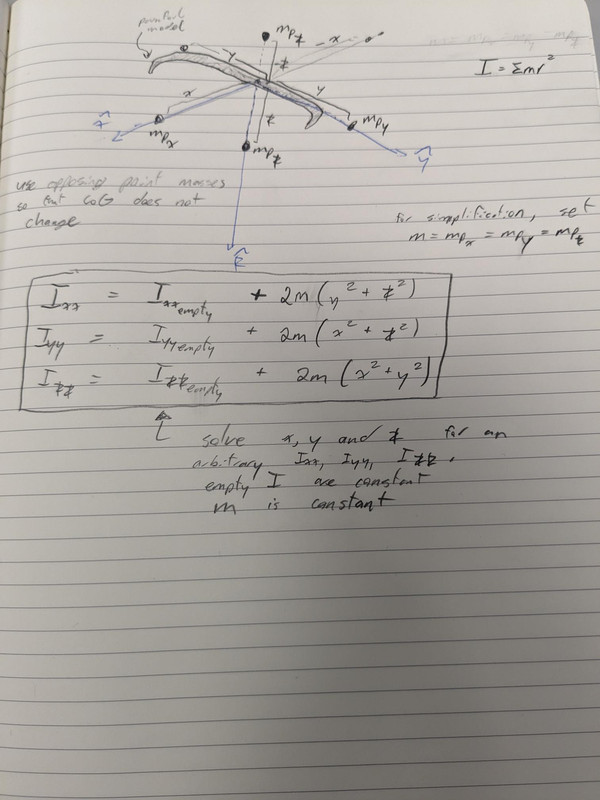 model
mp_z
-x
-y
-z
I = Σmr²
x
y
z
x̂
mp_x
mp_y
mp_z
ŷ
use opposing point masses
so that CoG does not
change
ẑ
for simplification, set
m = mp_x = mp_y = mp_z
I_xx = I_xx empty + 2m(y² + z²)
I_yy = I_yy empty + 2m(x² + z²)
I_zz = I_zz empty + 2m(x² + y²)
solve x, y and z for an
arbitrary Ixx, Iyy, Izz.
empty I are constant
m is constant